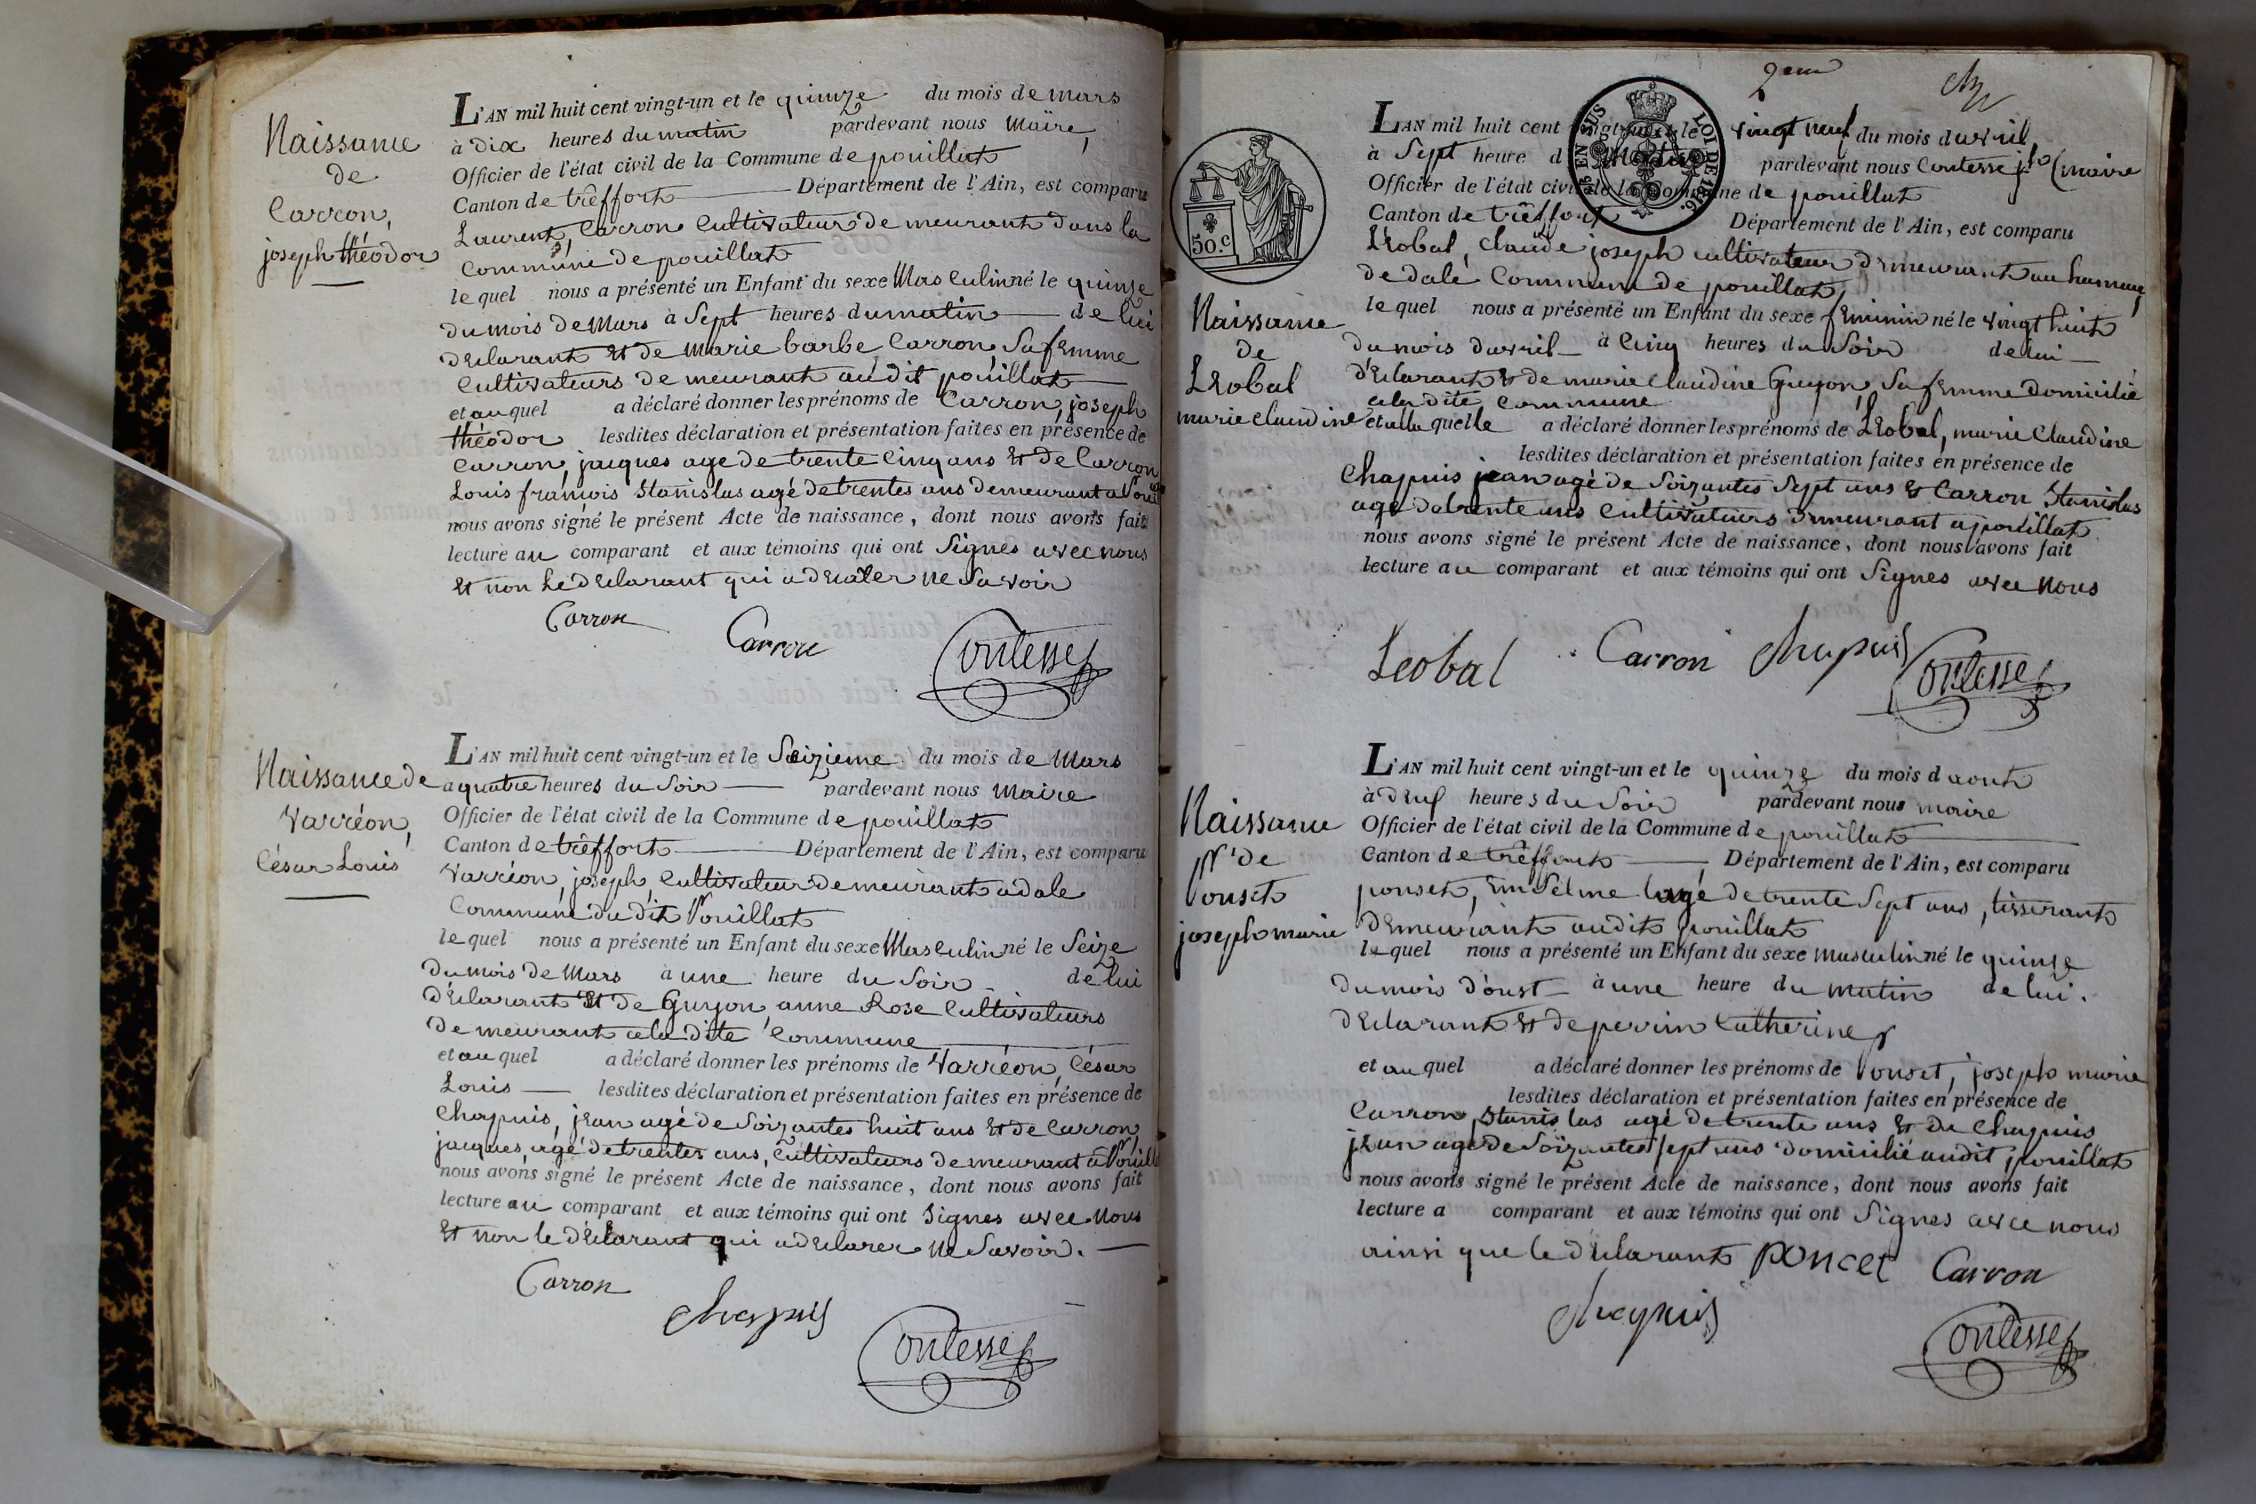 Naissance
de
Carron,
joseph théodor
L'AN mil huit cent vingt-un et le quinze du mois de mars
à dix heures du matin pardevant nous Maire,
Officier de l'état civil de la Commune de pouillat
Canton de trêffort Département de l'Ain, est comparu
Laurent, Carron Cultivateur de meurant dans la
Commune de pouillat
le quel nous a présenté un Enfant du sexe Masculin né le quinze
du mois de Mars à Sept heures du matin de lui
déclarant et de Marie barbe Carron, Sa femme
Cultivateurs de meurant audit pouillat
et au quel a déclaré donner les prénoms de Carron, joseph
théodor lesdites déclaration et présentation faites en présence de
Carron, jacques age de trente Cinq ans et de Carron
Louis françois Stanislas agé de trentes ans demeurant a
nous avons signé le présent Acte de naissance, dont nous avons fait
lecture au comparant et aux témoins qui ont Signés avec nous
et non le déclarant qui a ne Savoir
Carron
Carron
Contesse
Naissance de
Varréon,
César Louis
L'AN mil huit cent vingt-un et le Seizieme du mois de Mars
a quatre heures du Soir pardevant nous Maire
Officier de l'état civil de la Commune de pouillat
Canton de trêffort Département de l'Ain, est comparu
Varréon, joseph, Cultivateur demeurant a dale
Commune du dit Pouillat
le quel nous a présenté un Enfant du sexe Masculin né le Seize
du mois de Mars à une heure du Soir de lui
déclarant et de Guyon, anne Rose Cultivateurs
de meurant a la ditte Commune
et au quel a déclaré donner les prénoms de Varréon, César
Louis lesdites déclaration et présentation faites en présence de
Chapuis, jean agé de Soizantes huit ans et de Carron,
jacques, agé de trentes ans, Cultivateurs de meurant a Pouill
nous avons signé le présent Acte de naissance, dont nous avons fait
lecture au comparant et aux témoins qui ont Signes avec Nous
et non le déclarant qui a declarer ne Savoir.
Carron
Chapuis
Contesse
2eme
50.c
EN SUS
LOI DE 1816.
Naissance
de
Léobal
marie claudine
L'AN mil huit cent vingt-un et le vingt neuf du mois d'avril
à Sept heure d pardevant nous Contesse maire
Officier de l'état civil de la Commune de pouillat
Canton de trêffort Département de l'Ain, est comparu
Léobal, Claude joseph cultivateur demeurant au hameau,
de dale, Commune de pouillat,
le quel nous a présenté un Enfant du sexe feminin né le vingt huit
du mois d'avril à Cinq heures du Soir de lui
déclarant et de marie Claudine Guyon, Sa femme Domicilié
a la dite commune
et a la quelle a déclaré donner les prénoms de Léobal, marie Claudine
lesdites déclaration et présentation faites en présence de
Chapuis jean agé de Soizantes Sept ans et Carron Stanislas
age de trente ans cultivateurs demeurant a pouillat
nous avons signé le présent Acte de naissance, dont nous avons fait
lecture au comparant et aux témoins qui ont Signes avec Nous
Leobal
Carron
Chapuis
Contesse
Naissance
de
Ponset
joseph marie
L'AN mil huit cent vingt-un et le quinze du mois d'aout
à heures du Soir pardevant nous maire
Officier de l'état civil de la Commune de pouillat
Canton de trêffort Département de l'Ain, est comparu
ponset, agé de trente Sept ans, tisserant
demeurant audit pouillat
le quel nous a présenté un Enfant du sexe masculin né le quinze
du mois d'oust à une heure du matin de lui.
déclarant et de perrin Catherine
et au quel a déclaré donner les prénoms de Ponset, joseph marie
lesdites déclaration et présentation faites en présence de
Carron, Stanislas agé de trente ans et de Chapuis
jean age de Soizantes sept ans domicilié audit pouillat
nous avons signé le présent Acte de naissance, dont nous avons fait
lecture a comparant et aux témoins qui ont Signes avec nous
ainsi que le déclarant PONCET Carron
Chapuis
Contesse